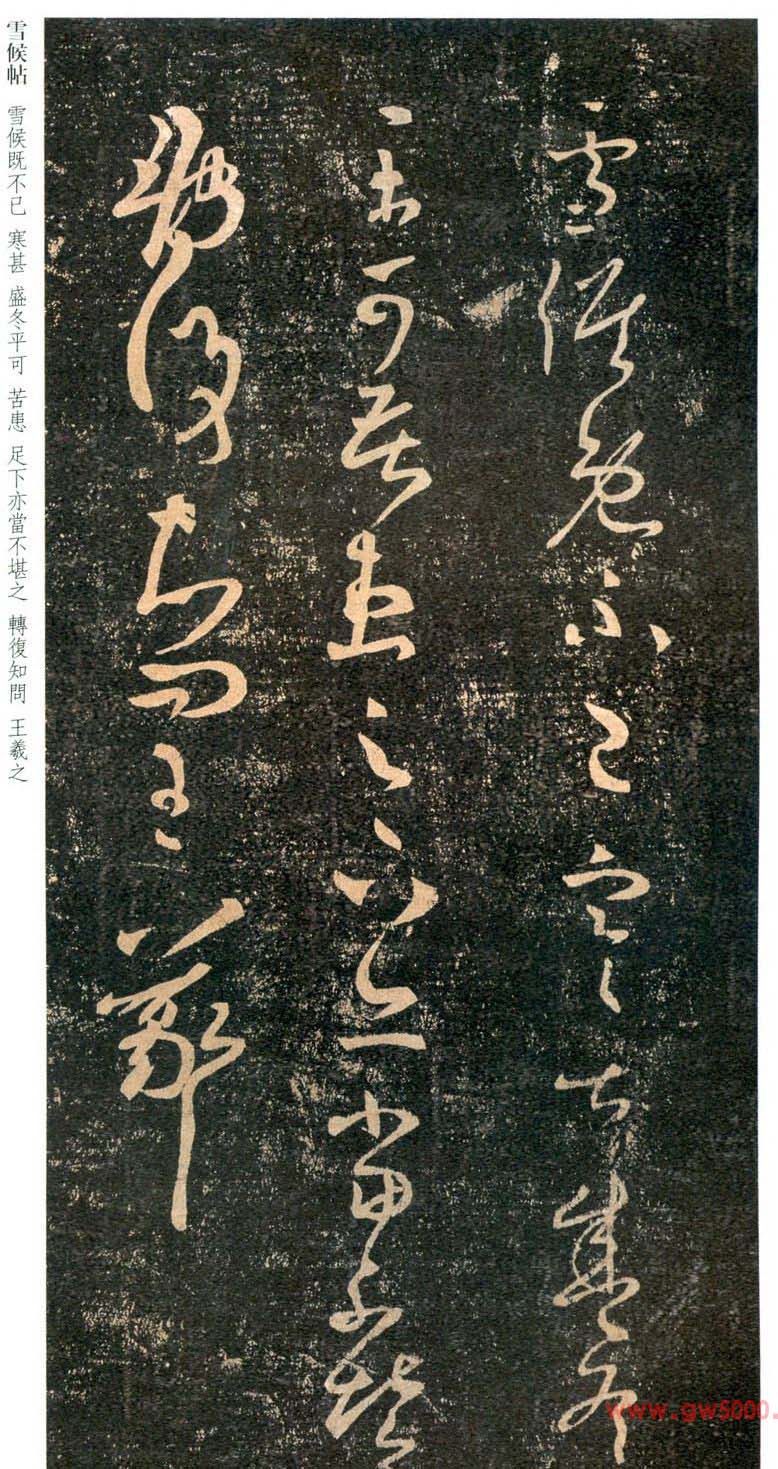 雪候既不已寒甚盛冬
平可苦患足下亦當不堪之
轉復知問王羲之
雪候帖 雪候既不已 寒甚 盛冬平可 苦患 足下亦當不堪之 轉復知問 王羲之
www.gw5000.